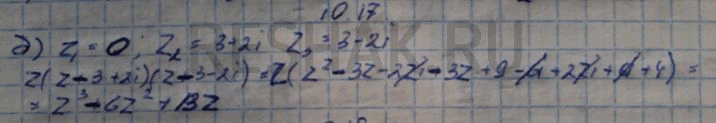 10.17
д) z₁ = 0; z₂ = 3+2i z₃ = 3-2i
z(z-3+2i)(z-3-2i) = z(z²-3z-2zi-3z+9-6i+2zi+6i+4) =
= z³-6z²+13z
RESHAK.RU